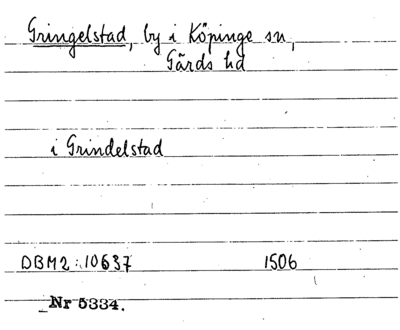 Gringelstad, by i Köpinge sn,
Gärds hd
i Grindelstad
DBM2:10637 1506
Nr 5334.